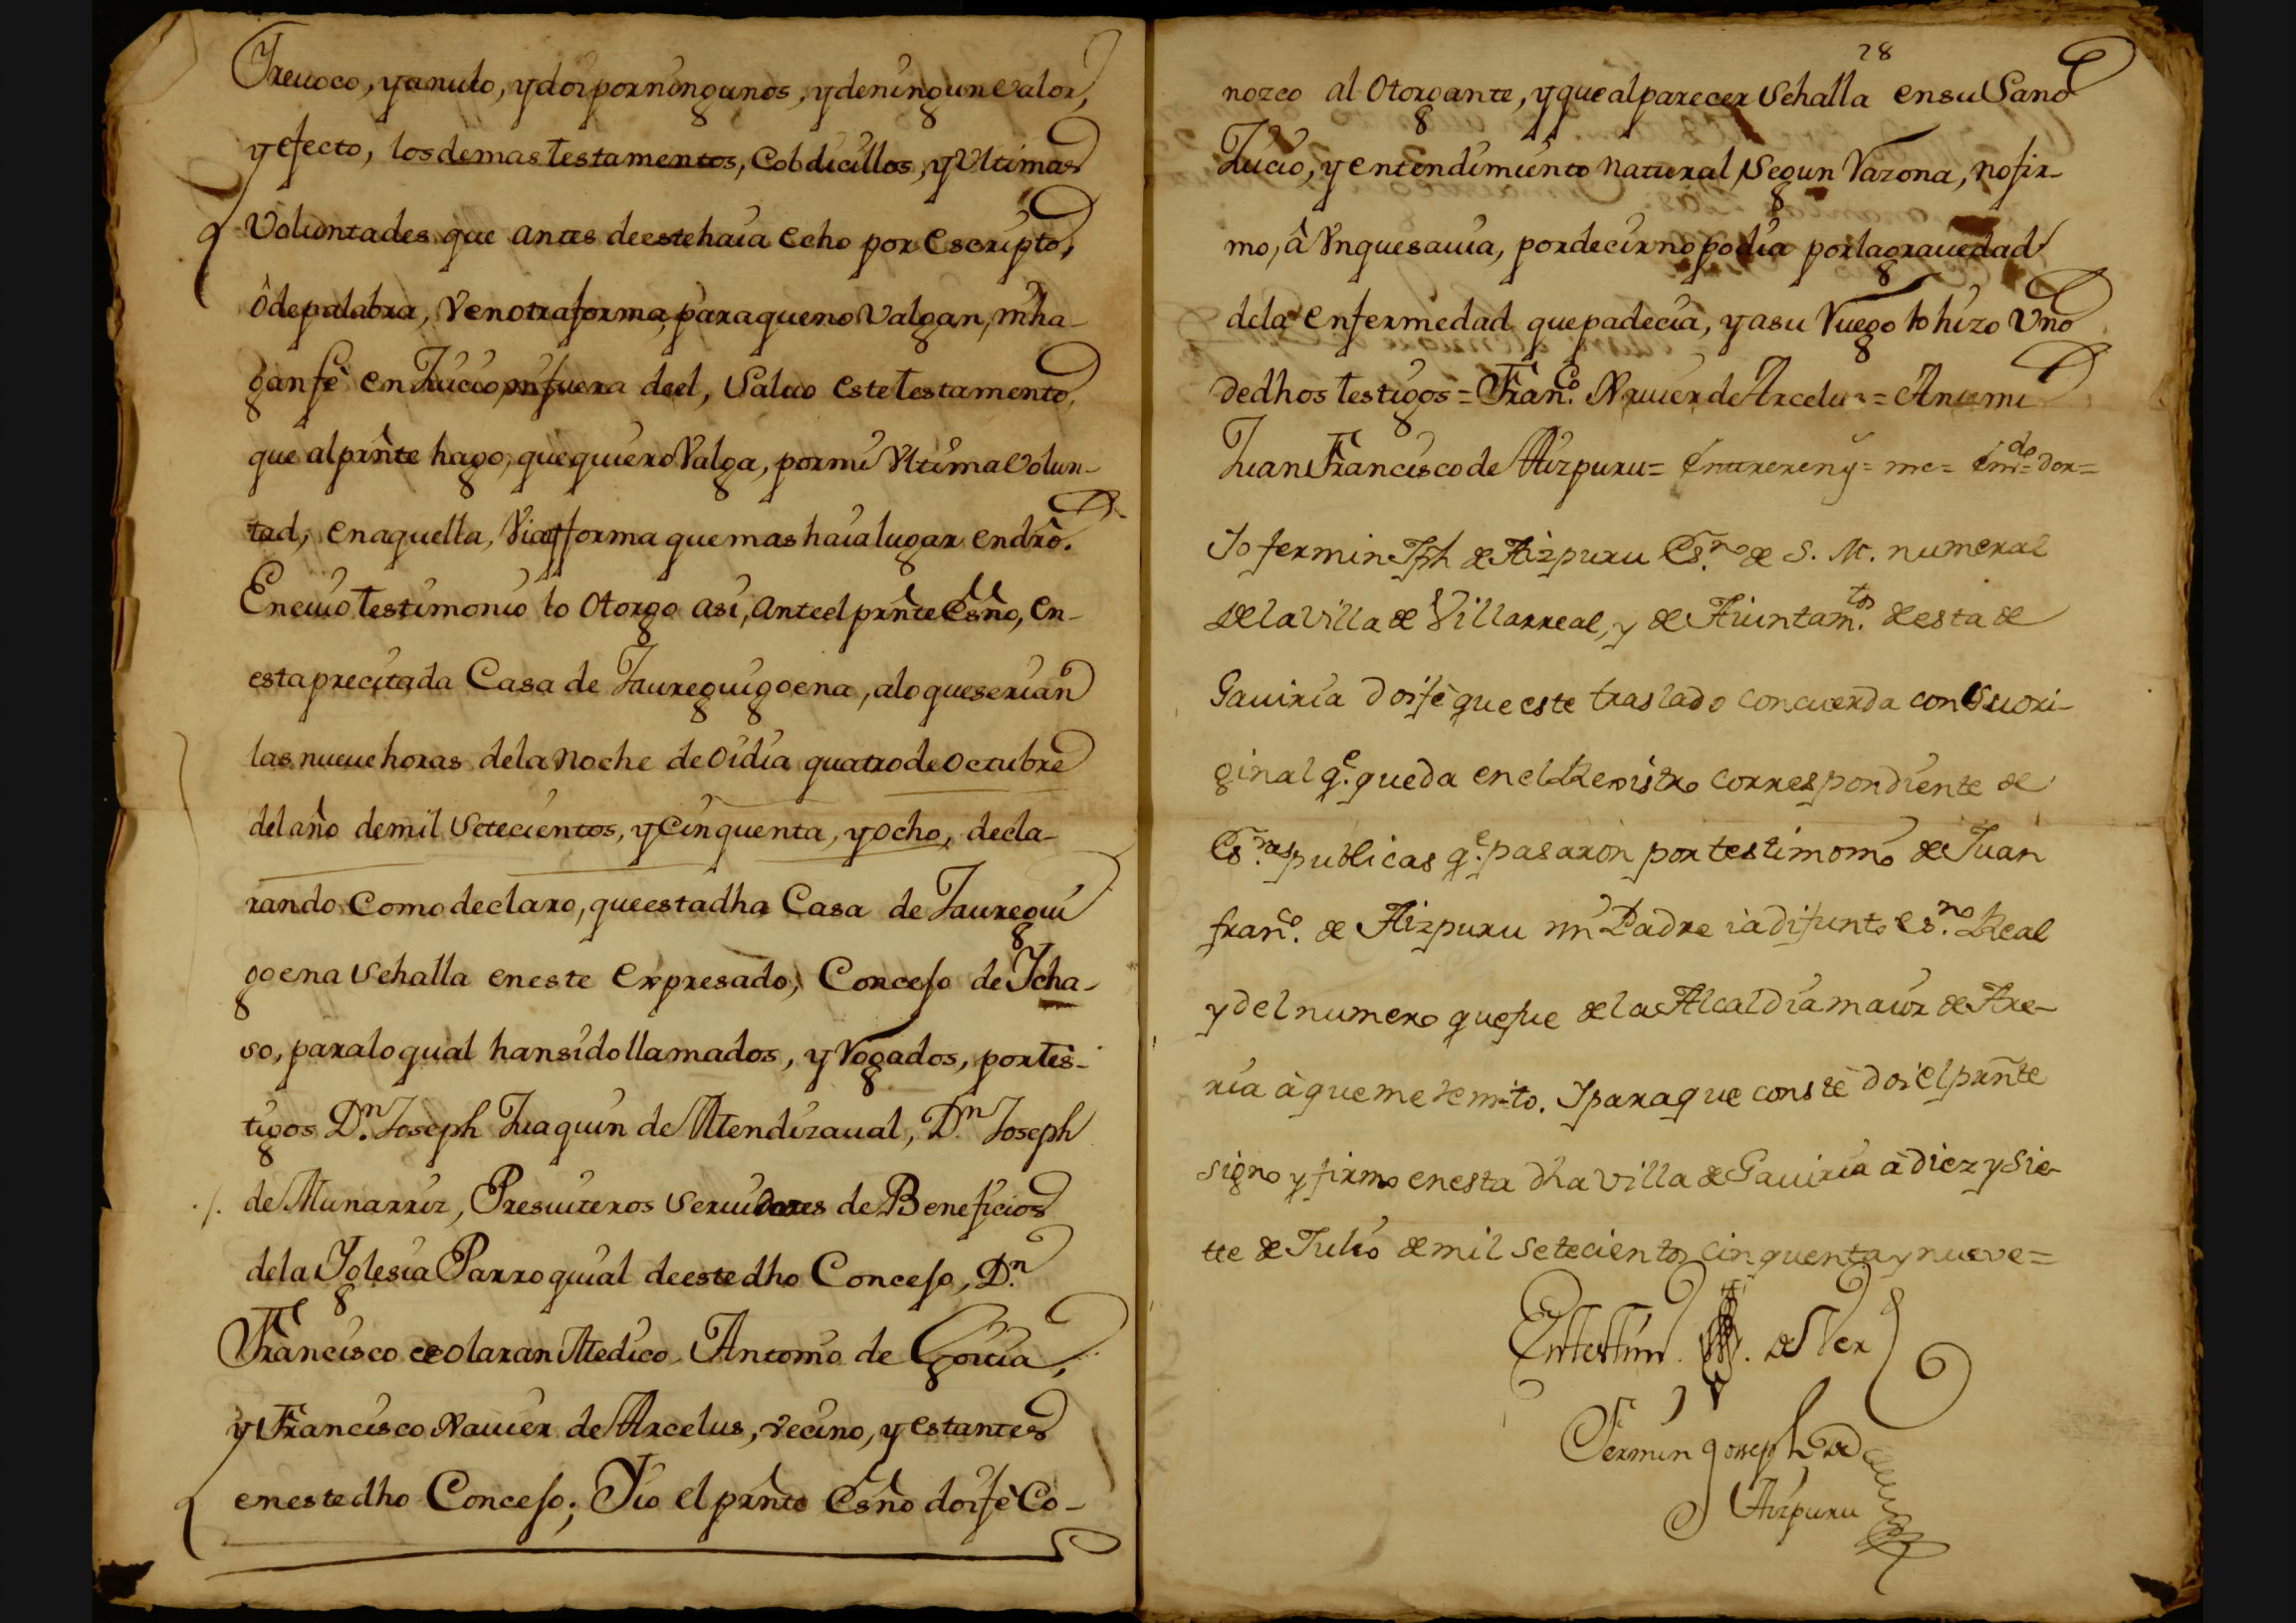 Y reuoco, y anulo, y doi por ningunos, y de ningun valor,
y efecto, los demas testamentos, Cobdicillos, y Vltimas
Voluntades que antes de este haia echo por escripto,
ô de palabra, v en otra forma, para que no Valgan, ni ha-
gan fè en Juicio, ni fuera de el, Saluo este testamento,
que al prñte hago, que quiero Valga, por mi Vltima Volun-
tad, en aquella, Via y forma que mas haia lugar en drô.
En cuio testimonio lo Otorgo asi, ante el prñte Esño, en-
esta precitada Casa de Jaureguigoena, a lo que serian
las nueue horas de la noche de oi dia quatro de octubre
del año de mil Setecientos, y Cinquenta, y ocho, decla-
rando como declaro, que esta dha Casa de Jauregui
goena Se halla en este expresado, Concejo de Ycha-
so, para lo qual han sido llamados, y Rogados, por tes-
tigos D.n Joseph Juaquin de Mendizaual, D.n Joseph
de Munarriz, Presuiteros Seruidores de Beneficios
de la Yglesia Parroquial de este dho Concejo, D.n
Francisco de olaran Medico Antonio de Egoitia,
y Francisco Xauier de Arcelus, vecino, y estantes
en este dho Concejo; Yio el prñte Esño doi fè Co-
28
nozco al Otorgante, y que al parecer Se halla en su Sano
Juicio, y entendimiento natural Segun Razona, no fir-
mo, â Vnque sauia, por decir no podia por la grauedad
de la enfermedad que padecia, y a su Ruego lo hizo Vno
de dhos testigos = Fran.co Xauier de Arcelus = Ante mi
Juan Francisco de Aizpuru = Entre reng = me = Em.do = dor =
Jo fermin Jph de Aizpuru Es.no de S. M. numeral
de la Villa de Villarreal, y de Aiuntam.tos de esta de
Gauiria doi fè que este traslado concuerda con Su ori-
ginal q.e queda en el Registro correspondiente de
Es.ras publicas q.e pasaron por testimonio de Juan
fran.co de Aizpuru mi Padre ia difunto es.no Real
y del numero que fue de la Alcaldia maior de Are-
ria à que me remito. Y para que conste doi el prñte
signo y firmo en esta dha Villa de Gauiria à diez y Sie-
te de Julio de mil Setecientos cinquenta y nueve =
En testim.o de Ver
Fermin Joseph de
Aizpuru